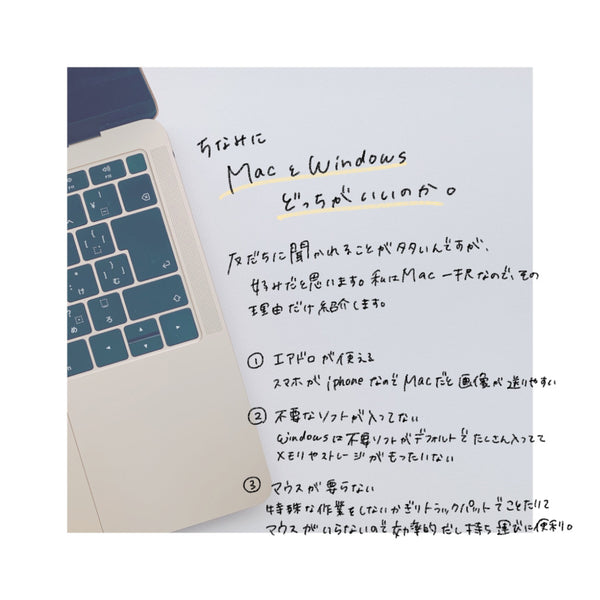 ちなみに
MacとWindows
どっちがいいのか。
友だちに聞かれることが多いんですが、
好みだと思います。私はMac一択なので、その
理由だけ紹介します。
① エアドロが使える
スマホがiphoneなのでMacだと画像が送りやすい
② 不要なソフトが入ってない
windowsは不要ソフトがデフォルトでたくさん入ってて
メモリやストレージがもったいない
③ マウスが要らない
特殊な作業をしないかぎりトラックパットでことたりて
マウスがいらないので効率的だし持ち運びに便利。